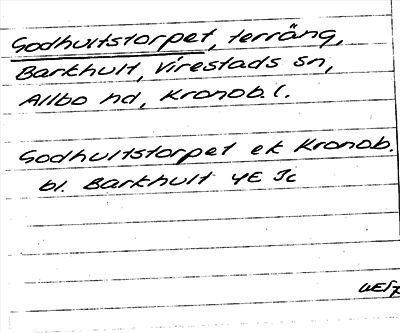 Godhultstorpet, terräng,
Barkhult, Virestads sn,
Allbo hd, Kronob. l.
Godhultstorpet ek Kronob.
bl. Barkhult 4E Jc